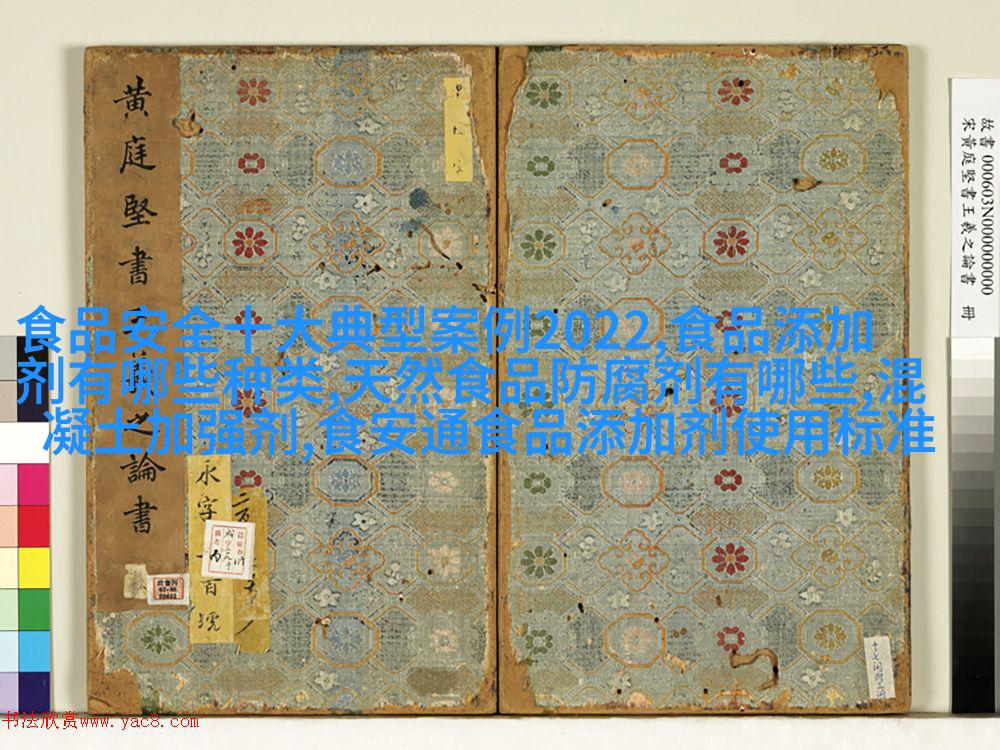 食品安全十大典型案例2022,食品添加
剂有哪些种类,天然食品防腐剂有哪些,混
凝土加强剂,食安通食品添加剂使用标准
黄庭堅書
之論書
永字
百號
故書 000603N000000000
宋黄庭堅書王羲之論書 冊
书法欣赏www.yac8.com